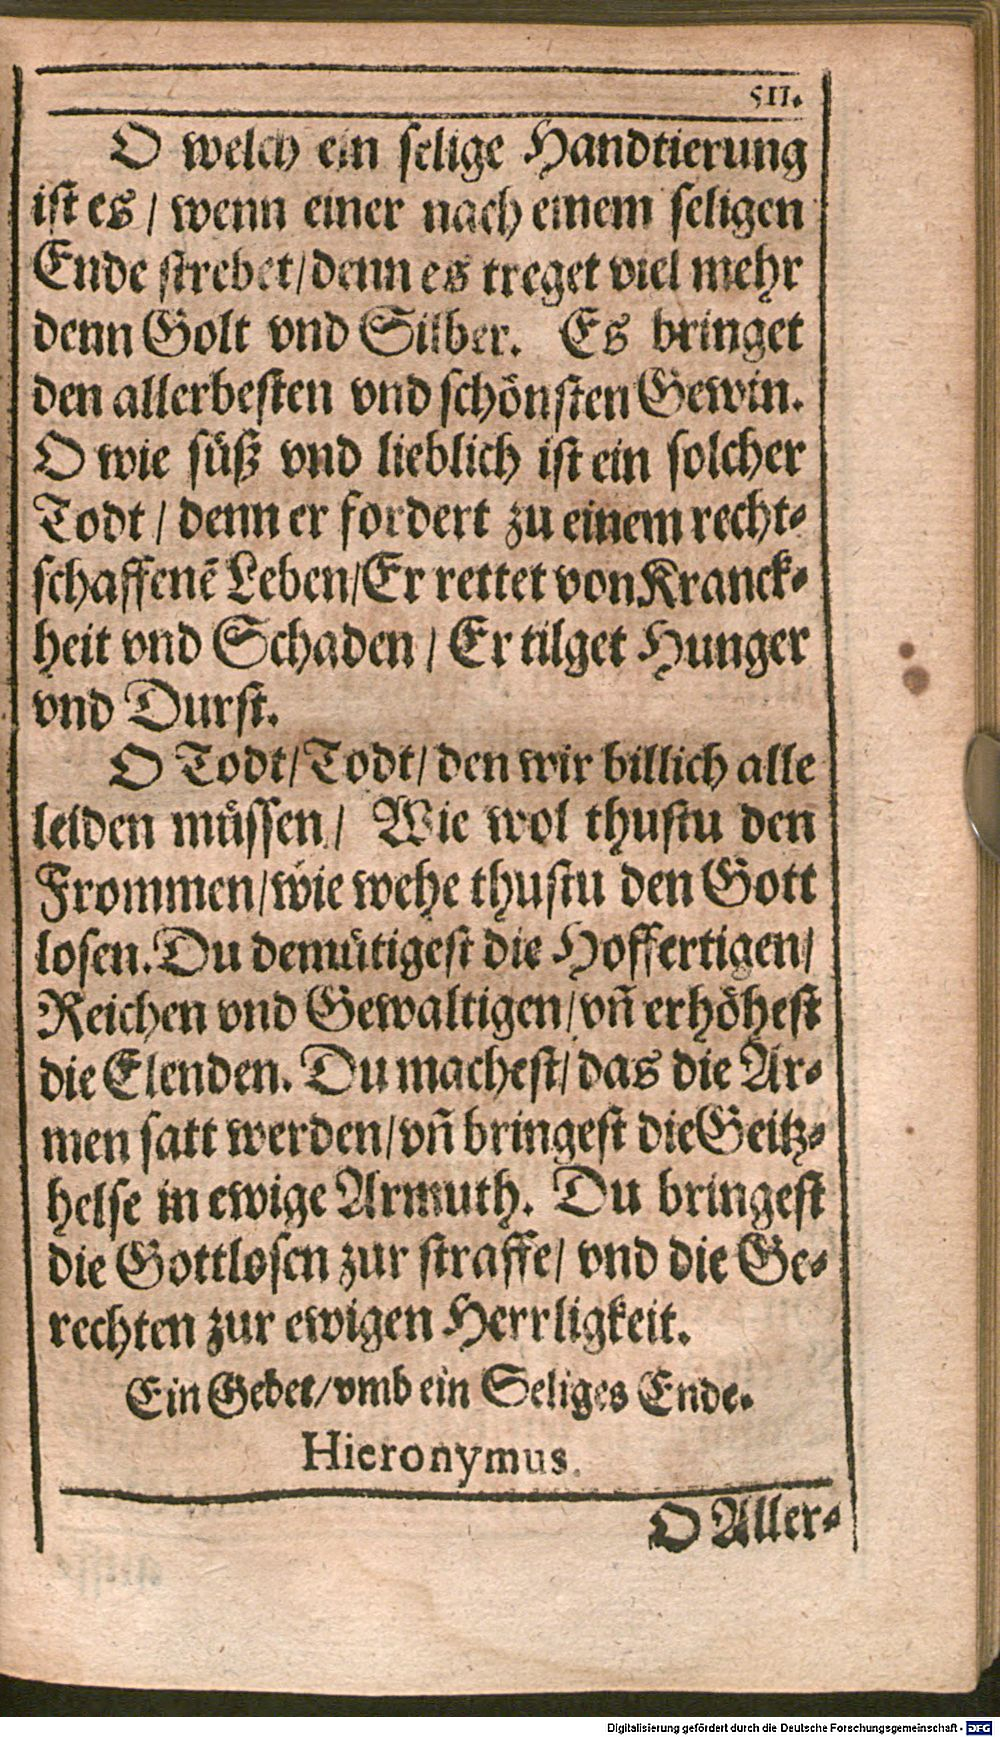 511.
O welch ein selige Handtierung
ist es / wenn einer nach einem seligen
Ende strebet/denn es treget viel mehr
denn Golt vnd Silber. Es bringet
den allerbesten vnd schönsten Gewin.
O wie süß vnd lieblich ist ein solcher
Todt / denn er fordert zu einem recht-
schaffenē Leben/Er rettet von Kranck-
heit vnd Schaden / Er tilget Hunger
vnd Durst.
O Todt/Todt/den wir billich alle
leiden müssen/ Wie wol thustu den
Frommen/wie wehe thustu den Gott
losen. Du demütigest die Hoffertigen/
Reichen vnd Gewaltigen/vñ erhöhest
die Elenden. Du machest/das die Ar-
men satt werden/vñ bringest die Geitz-
helse in ewige Armuth. Du bringest
die Gottlosen zur straffe/ vnd die Ge-
rechten zur ewigen Herrligkeit.
Ein Gebet/vmb ein Seliges Ende.
Hieronymus.
O Aller-
Digitalisierung gefördert durch die Deutsche Forschungsgemeinschaft - DFG